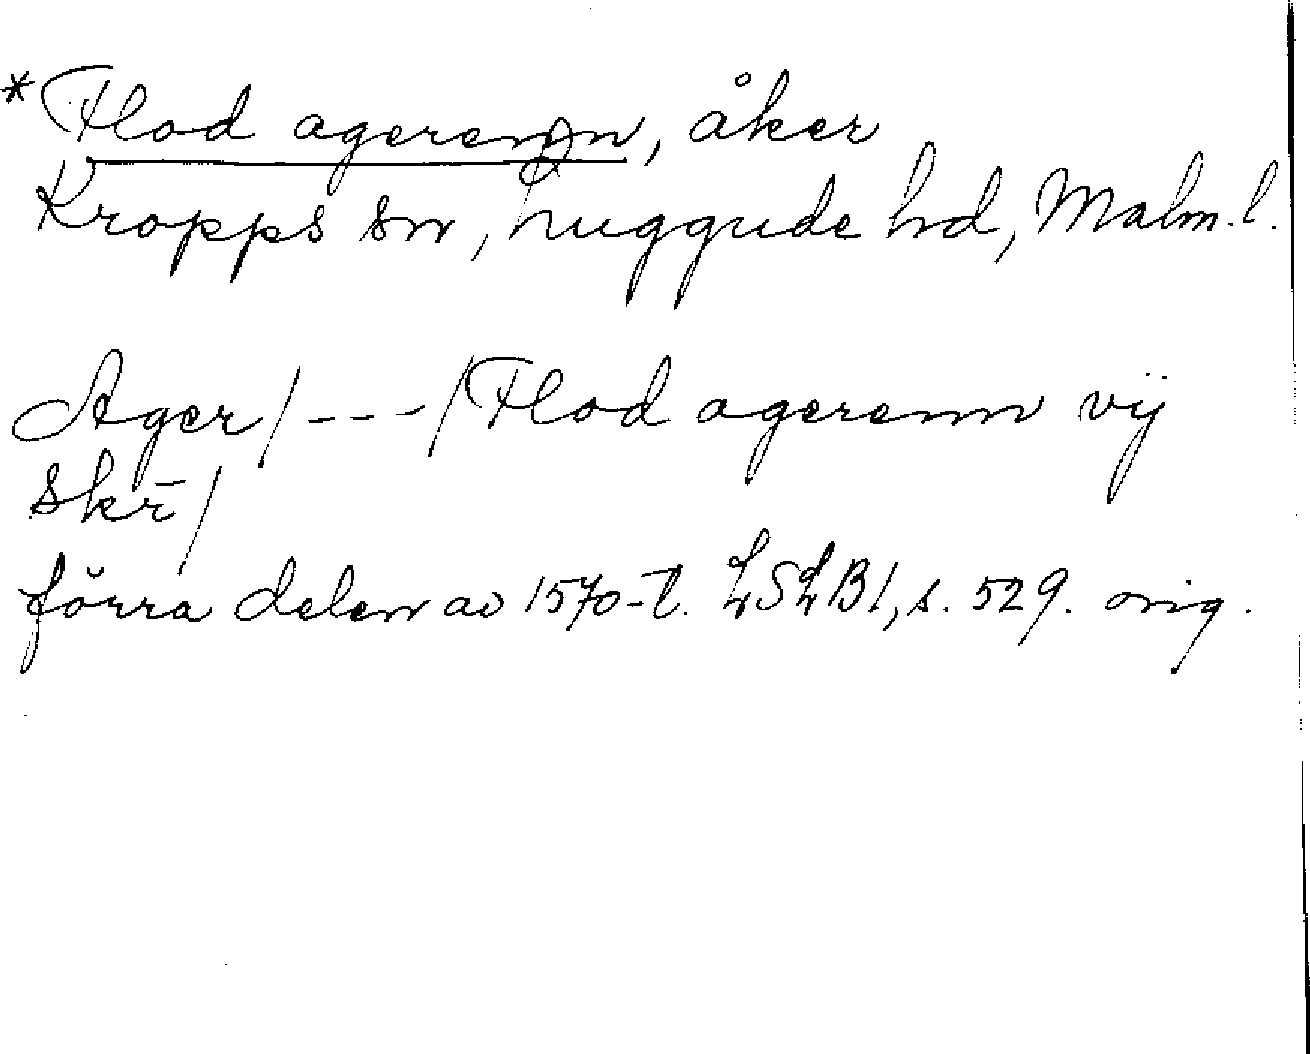 *Flod agerenn, åker
Kropps sn, Luggude hd, Malm. l.
Ager/---/Flod agerenn vij
skr̄/
förra delen av 1570-t. LSLB1, s. 529. orig.